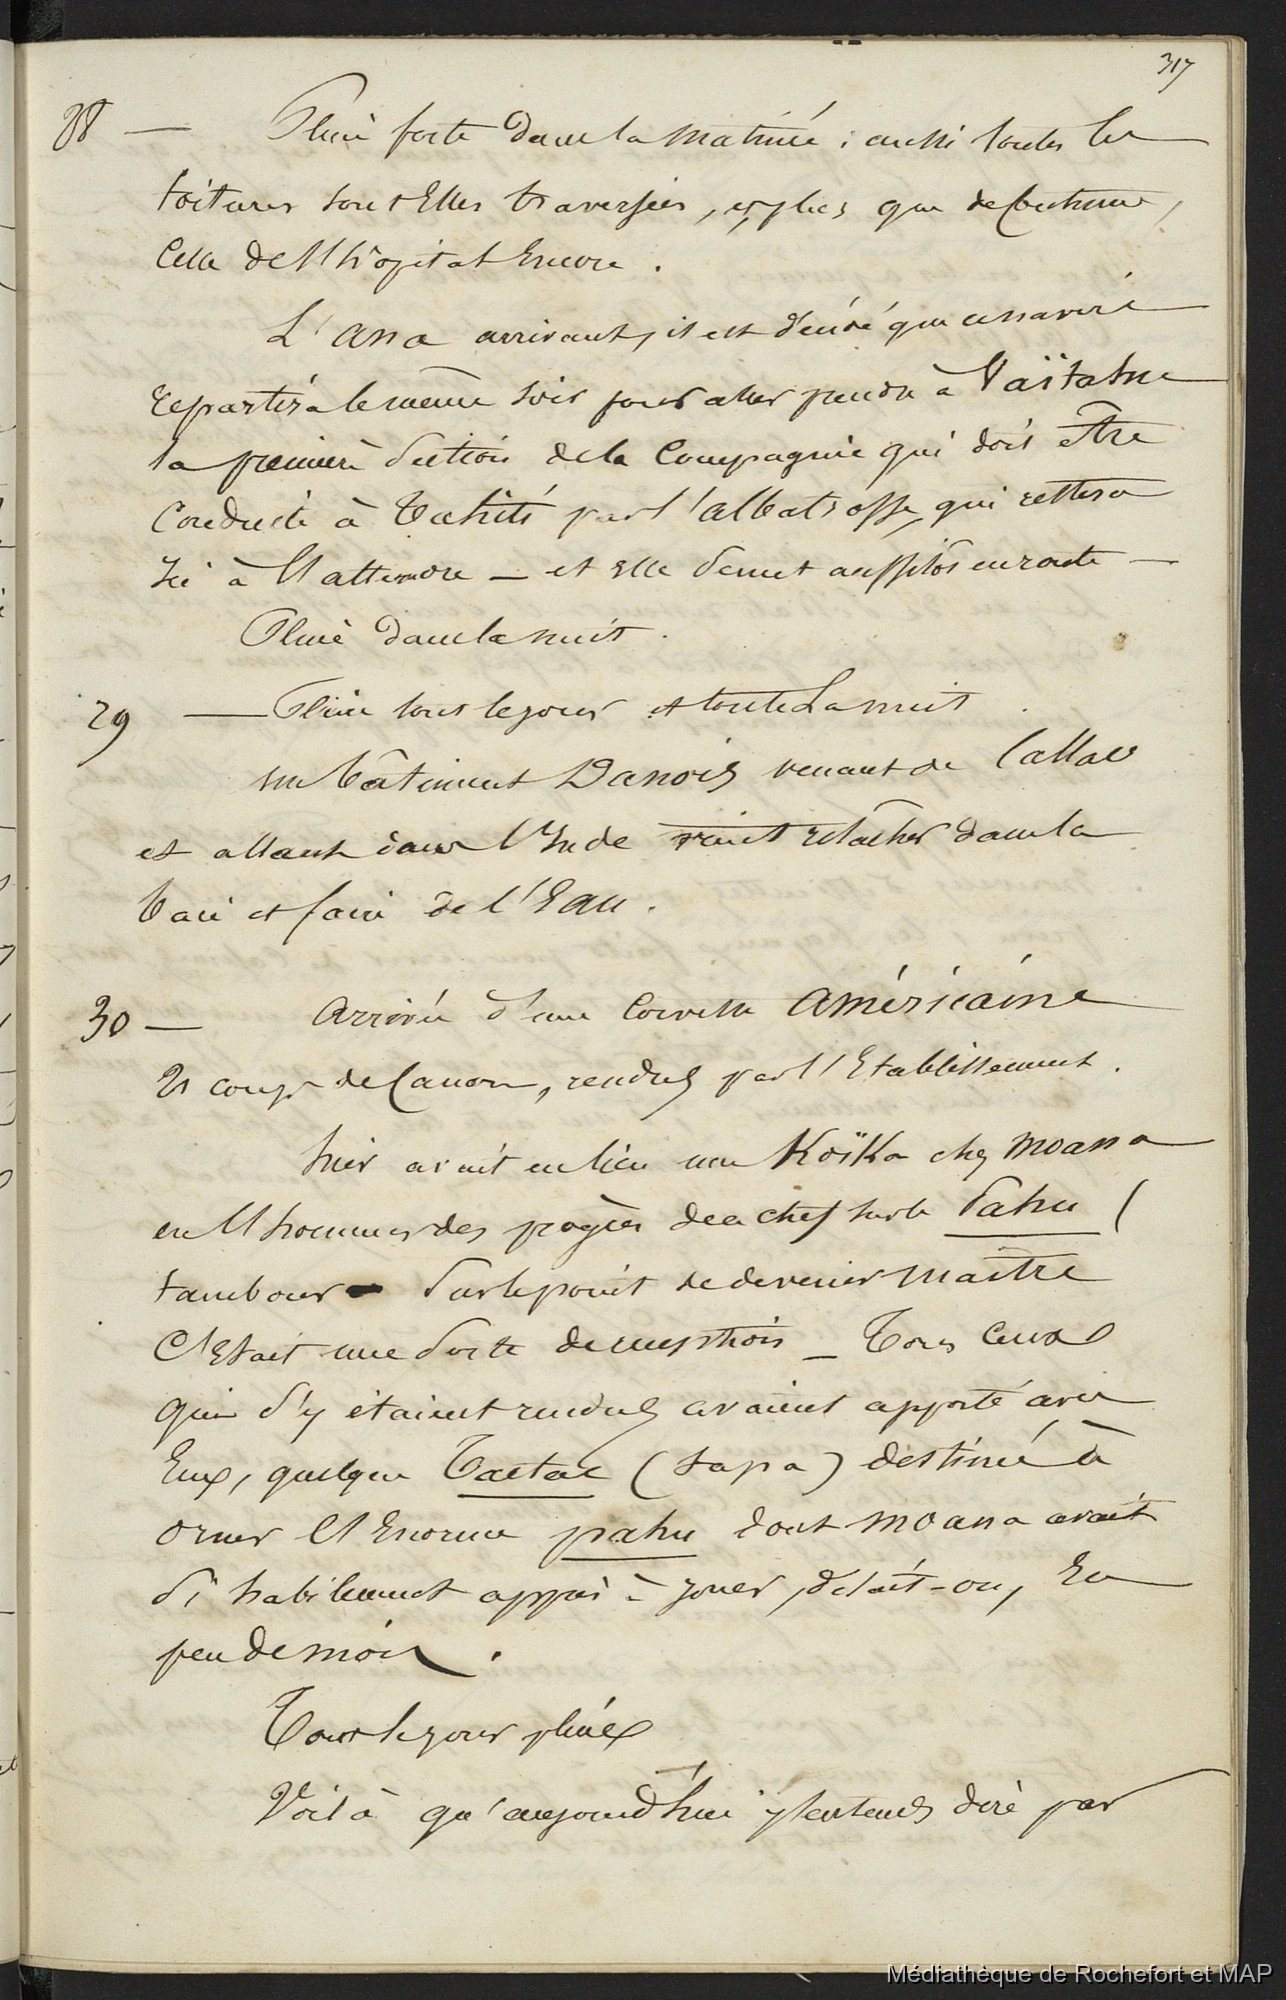 317
28 — Pluie forte dans la matinée ; aussi toutes les
toitures sont Elles traversées, et plus que de Coutume,
Celle de l'hôpital Encore.
L'Ana arrivant, il est décidé que ce navire
repartira le même soir pour aller prendre à Vaïtahu
la première Section de la Compagnie qui doit être
Conduite à Tahiti par l'albatrosse, qui restera
Ici à l'attendre — et Elle se met aussitôt en route —
Pluie dans la nuit.
29 — Pluie tout le jour et toute La nuit.
Un bâtiment Danois venant de Callao
et allant dans l'Inde vint relâcher dans la
baie et faire de l'Eau.
30 — Arrivée d'une Corvette Américaine
21 coups de Canon, rendus par l'Etablissement.
hier avait eu lieu un Koïka chez Moana
en l'honneur des progrès de ce chef sur le Pahu (
tambour — Sur le point de devenir maître
C'Etait une Sorte de réception — Tous Ceux
qui s'y étaient rendus avaient apporté avec
Eux, quelque (tapa) destiné à
orner l'Enorme pahu dont Moana avait
Si habilement appris à jouer, disait-on, En
peu de mois.
Tout le jour pluie
Voilà qu'aujourd'hui j'entends dire par
Médiathèque de Rochefort et MAP